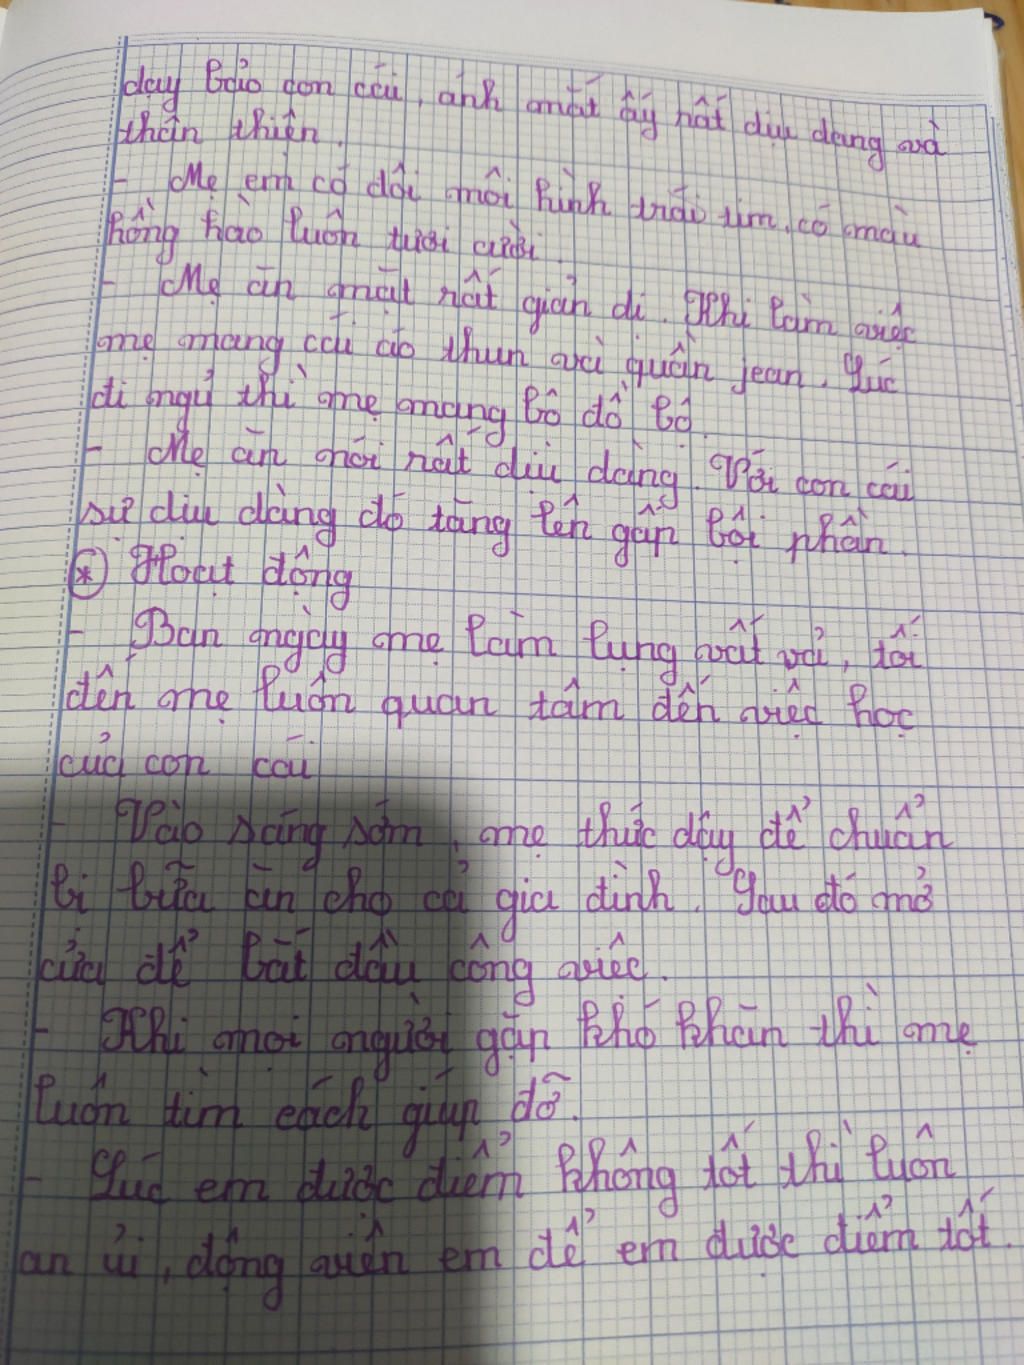 dạy bảo con cái, ánh mắt ấy rất dịu dàng và
thân thiện.
- Mẹ em có đôi môi hình trái tim, có màu
hồng hào luôn tươi cười.
- Mẹ ăn mặt rất giản dị. Khi làm việc
mẹ mang cái áo thun và quần jean. Lúc
đi ngủ thì mẹ mang bộ đồ bộ.
- Mẹ ăn nói rất dịu dàng. Với con cái
sự dịu dàng đó tăng lên gấp bội phần.
* Hoạt động
- Ban ngày mẹ làm lụng vất vả, tối
đến mẹ luôn quan tâm đến việc học
của con cái.
- Vào sáng sớm, mẹ thức dậy để chuẩn
bị bữa ăn cho cả gia đình. Sau đó mở
cửa để bắt đầu công việc.
- Khi mọi người gặp khó khăn thì mẹ
luôn tìm cách giúp đỡ.
- Lúc em được điểm không tốt thì luôn
an ủi, động viên em để em được điểm tốt.